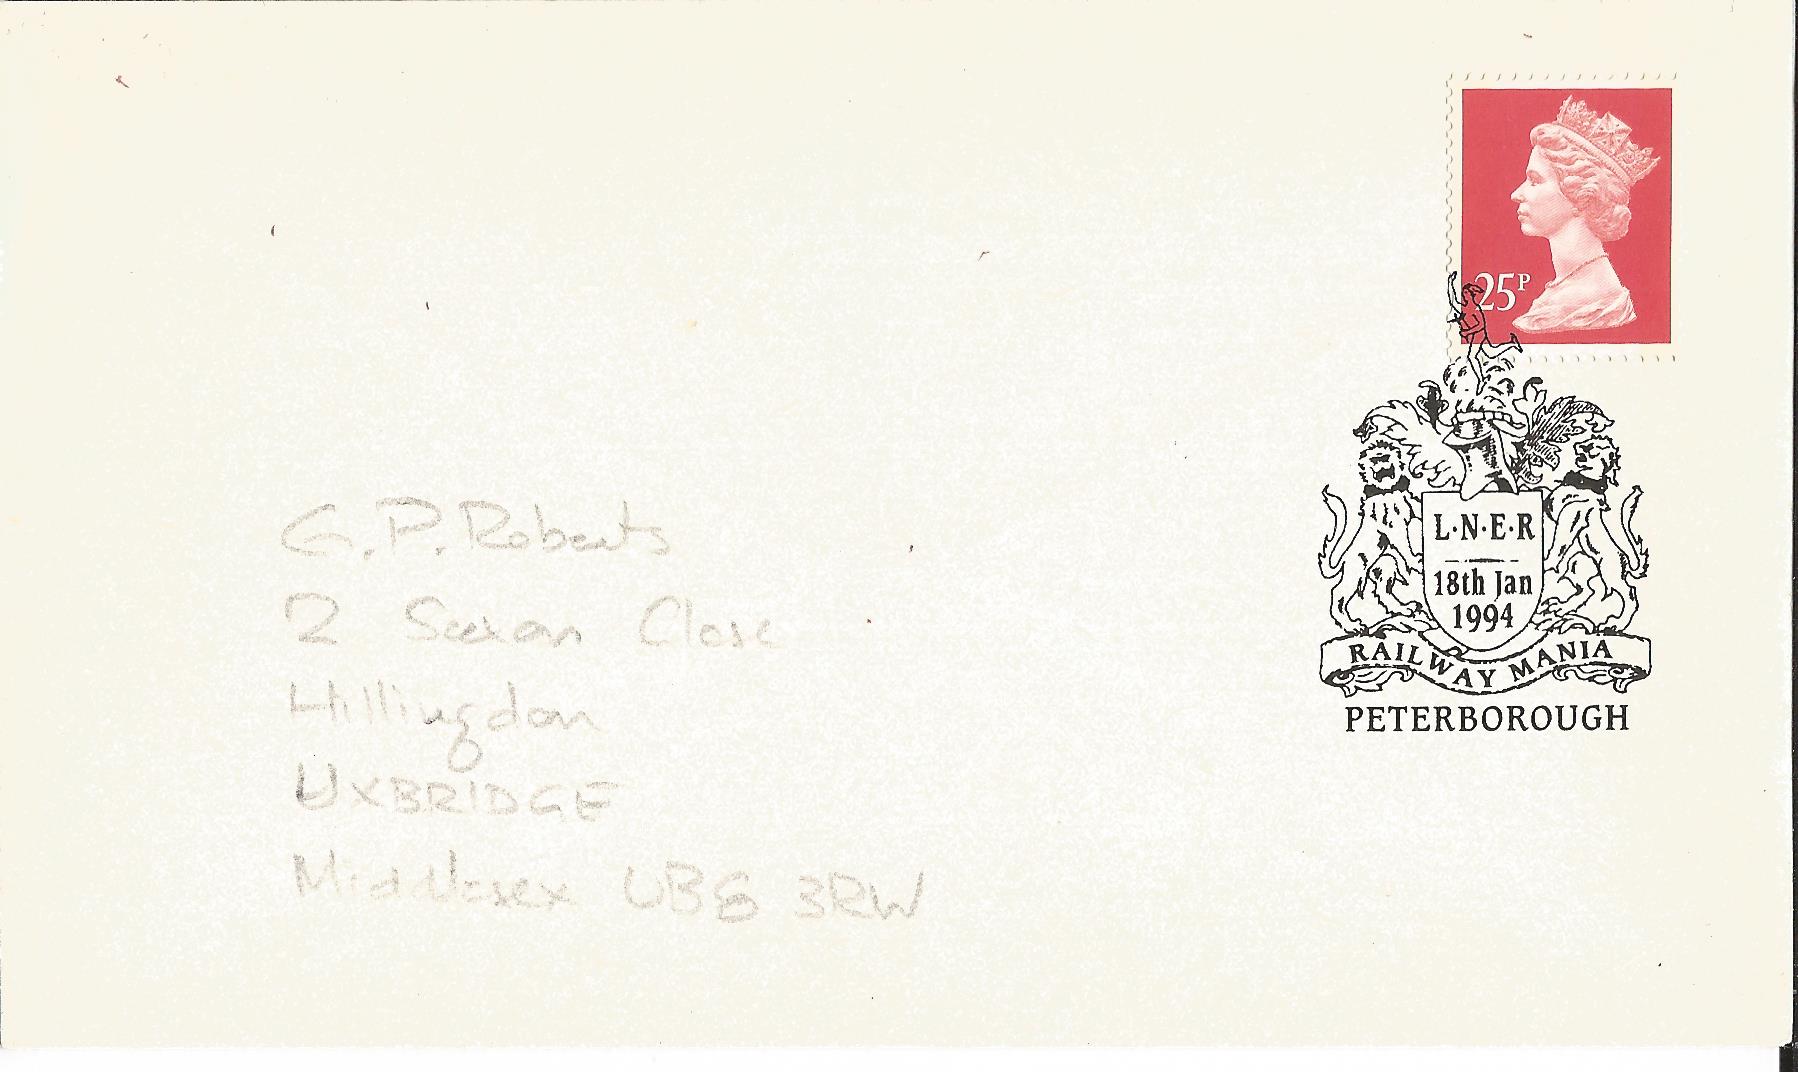 25P
L·N·E·R
18th Jan
1994
RAILWAY MANIA
PETERBOROUGH
G.P. Roberts
2 Saxon Close
Hillingdon
UXBRIDGE
Middlesex UB8 3RW